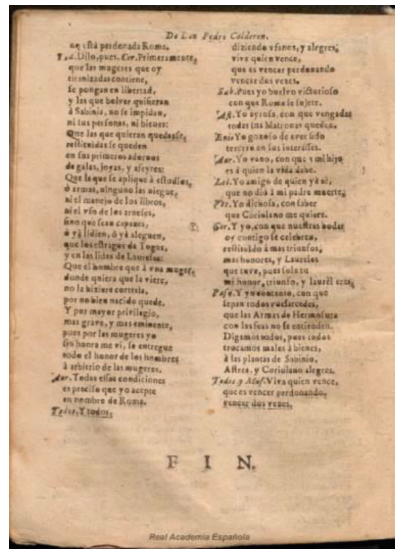 De Don Pedro Calderon.
no està perdonada Roma.
Tod. Dilo, pues. Cor. Primeramente,
que las mugeres que oy
tiranizadas contiene,
se pongan en libertad,
y las que bolver quisieran
à Sabinia, no se impidan,
ni sus personas, ni bienes:
Que las que quieran quedarse,
restituidas se queden
en sus primeros adornos
de galas, joyas, y afeytes:
Que la que se aplique à estudios,
ò armas, ninguno las niegue,
ni el manejo de los libros,
ni el vso de los arneses,
sino que sean capaces,
ò yà lidien, ò yà aleguen,
que los estrados de Togas,
y en las lides de Laureles:
Que el hombre que à vna muger,
donde quiera que la viere,
no la hiziere cortesia,
por no bien nacido quede.
Y por mayor privilegio,
mas grave, y mas eminente,
pues por las mugeres yo
sin honra me vi, se entregue
todo el honor de los hombres
à arbitrio de las mugeres.
Aur. Todas essas condiciones
es preciso que yo acepte
en nombre de Roma.
Todos. Y todos,
diziendo vfanos, y alegres,
viva quien vence,
que es vencer perdonando
vencer dos vezes.
Sab. Pues yo buelvo victorioso
con que Roma se sujete.
Ast. Yo ayrosa, con que vengadas
todas sus Matronas queden.
Enio. Yo gozoso de aver sido
tercero en sus interesses.
Aur. Yo vano, con que mi hijo
es à quien la vida debe.
Lel. Yo amigo de quien yà sè,
que no diò à mi padre muerte,
Vet. Yo dichosa, con saber
que Coriolano me quiere.
Cor. Y yo, con que nuestras bodas
oy contigo se celebren,
restituido à mis triunfos,
mis honores, y Laureles
que tuve, pues sola tu
mi honor, triunfo, y laurèl eres,
Pasq. Y yo contento, con que
sepan todos
que las Armas de Hermosura
con las feas no se entienden.
Digamos todos, pues todos
trocamos males à bienes,
à las plantas de Sabinio,
Astrea, y Coriolano alegres.
Todos y Musi. Viva quien vence,
que es vencer perdonando,
vencer dos vezes.
FIN.
Real Academia Española